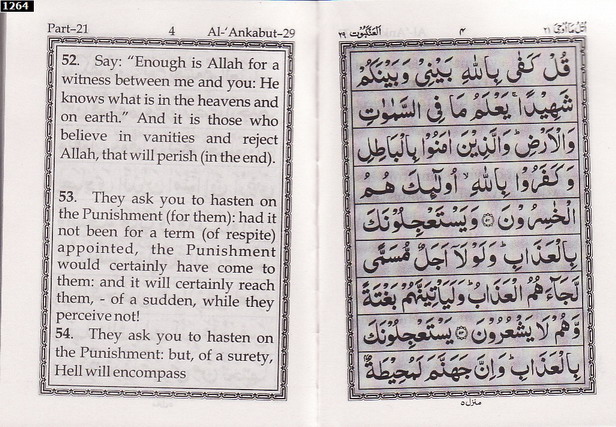 1264
Part-21 4 Al-'Ankabut-29
52. Say: "Enough is Allah for a
witness between me and you: He
knows what is in the heavens and
on earth." And it is those who
believe in vanities and reject
Allah, that will perish (in the end).
53. They ask you to hasten on
the Punishment (for them): had it
not been for a term (of respite)
appointed, the Punishment
would certainly have come to
them: and it will certainly reach
them, - of a sudden, while they
perceive not!
54. They ask you to hasten on
the Punishment: but, of a surety,
Hell will encompass
اتل ما اوحی ۲۱ ۴ العنکبوت ۲۹
قُلْ كَفٰى بِاللّٰهِ بَيْنِيْ وَبَيْنَكُمْ
شَهِيْدًا ۚ يَعْلَمُ مَا فِي السَّمٰوٰتِ
وَالْاَرْضِ ؕ وَالَّذِيْنَ اٰمَنُوْا بِالْبَاطِلِ
وَكَفَرُوْا بِاللّٰهِ ۙ اُولٰٓئِكَ هُمُ
الْخٰسِرُوْنَ ۝ وَيَسْتَعْجِلُوْنَكَ
بِالْعَذَابِ ؕ وَلَوْلَاۤ اَجَلٌ مُّسَمًّى
لَّجَآءَهُمُ الْعَذَابُ ؕ وَلَيَاْتِيَنَّهُمْ بَغْتَةً
وَّهُمْ لَا يَشْعُرُوْنَ ۝ يَسْتَعْجِلُوْنَكَ
بِالْعَذَابِ ؕ وَاِنَّ جَهَنَّمَ لَمُحِيْطَةٌۢ
منزل ۵